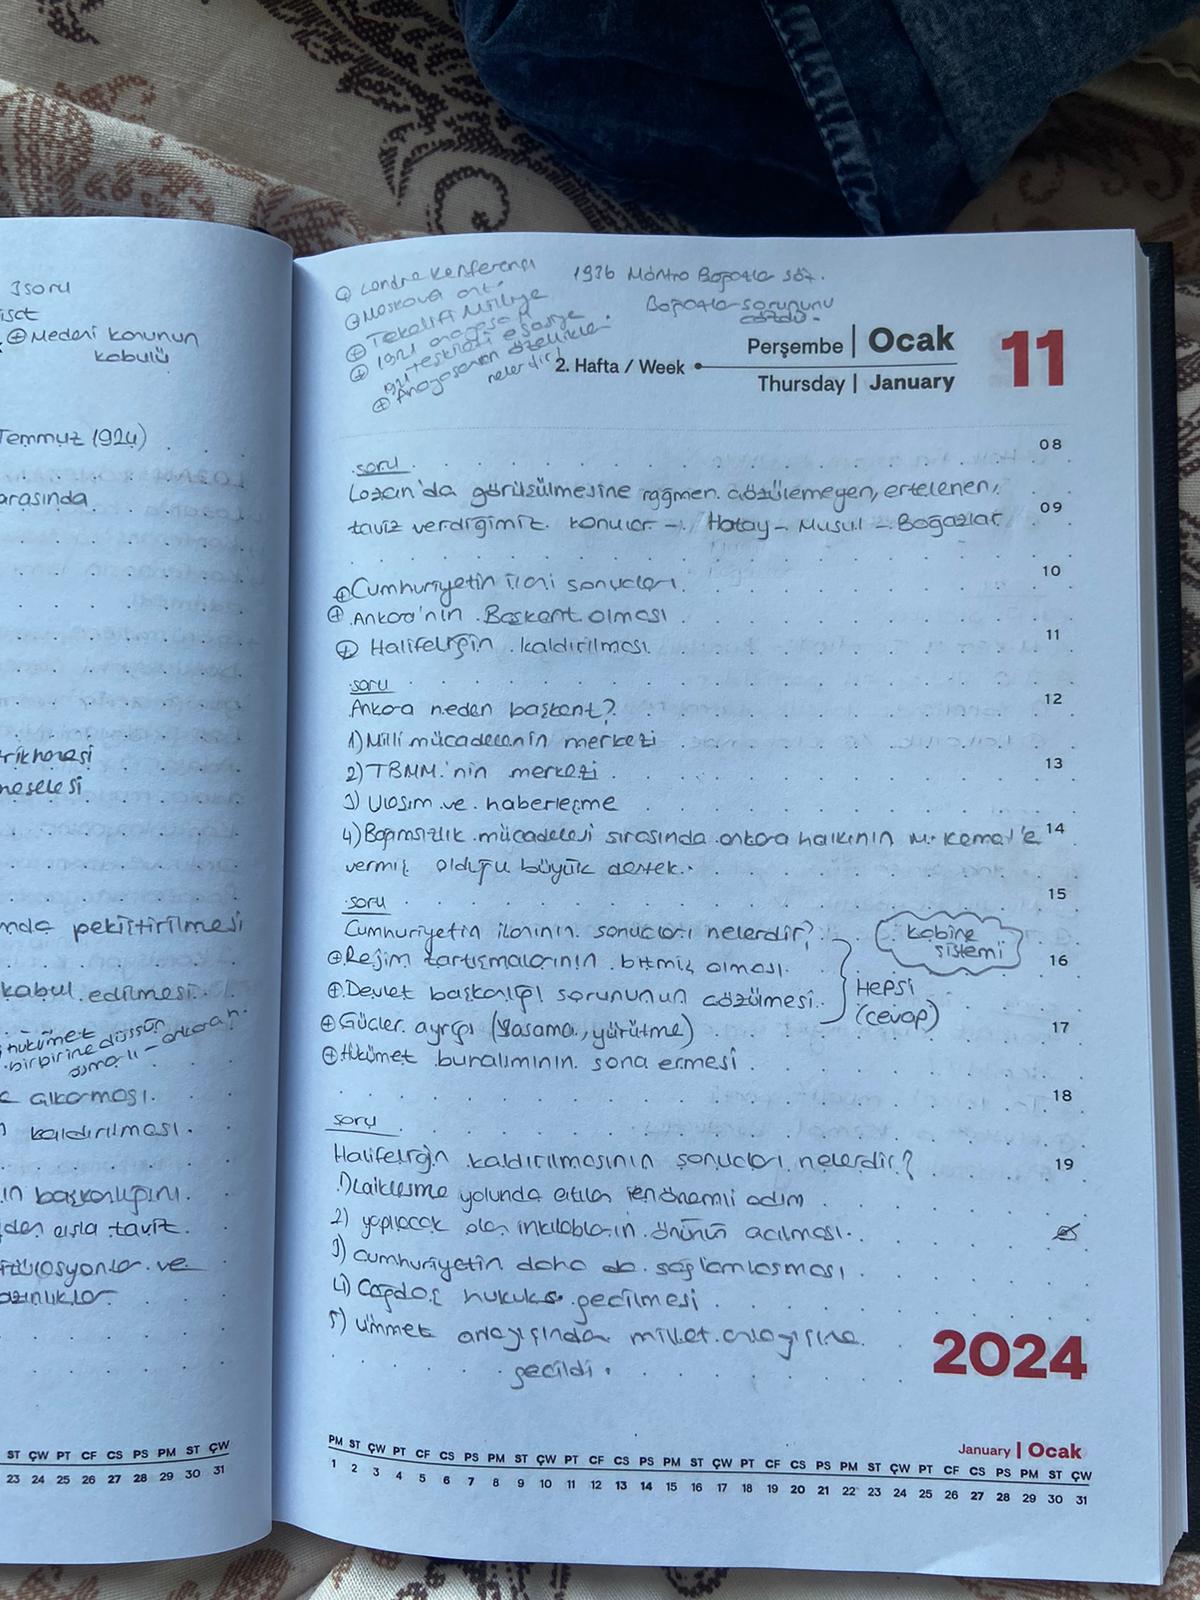 3 soru
⊕ Medeni konunun
kabulü
Temmuz 1924)
arasında
trikhanesi
meselesi
nda pekiştirilmesi
kabul edilmesi.
hükümet
birbirine düşsün
alkorması.
kaldırılması.
ın başkanlığını.
den asla taviz
ve
azınlıklar
ST ÇW PT CF CS PS PM ST ÇW
23 24 25 26 27 28 29 30 31
⊕ Londra Konferansı
⊕ Moskova ant.
⊕ Tekalifi Milliye
⊕ 1921 anayasası
1921 teşkilatı esasiye
⊕ Anayasanın özellikleri
nelerdir?
1936 Montro Boğazlar söz.
Boğazlar sorununu
çözdü.
2. Hafta / Week
Perşembe | Ocak
Thursday | January
11
08
soru
Lozan'da görüşülmesine rağmen çözülemeyen, ertelenen,
09
taviz verdiğimiz konular → Hatay - Musul - Boğazlar
10
⊕ Cumhuriyetin ilani sonuçları
⊕ Ankara'nın Başkent olması
11
⊕ Halifeliğin kaldırılması
soru
12
Ankara neden başkent?
1) Milli mücadelenin merkezi
13
2) TBMM'nin merkezi
3) Ulaşım ve haberleşme
14
4) Bağımsızlık mücadelesi sırasında ankara halkının M. Kemal'e
vermiş olduğu büyük destek.
15
soru
Cumhuriyetin ilanının sonuçları nelerdir?
kabine
sistemi
16
⊕ Rejim tartışmalarının bitmiş olması.
⊕ Devlet başkanlığı sorununun çözülmesi.
HEPSİ
(cevap)
17
⊕ Güçler ayrığı (Yasama, yürütme)
⊕ Hükümet bunalımının sona ermesi
18
soru
19
Halifeliğin kaldırılmasının sonuçları nelerdir?
1) Laikleşme yolunda atılan en önemli adım
2) yapılacak olan inkılabların önünün açılması.
3) Cumhuriyetin daha da sağlamlaşması
4) Çağdaş hukuka geçilmesi
5) Ümmet anlayışından millet anlayışına
geçildi.
2024
January | Ocak
PM ST ÇW PT CF CS PS PM ST ÇW PT CF CS PS PM ST ÇW PT CF CS PS PM ST ÇW PT CF CS PS PM ST ÇW
1 2 3 4 5 6 7 8 9 10 11 12 13 14 15 16 17 18 19 20 21 22 23 24 25 26 27 28 29 30 31